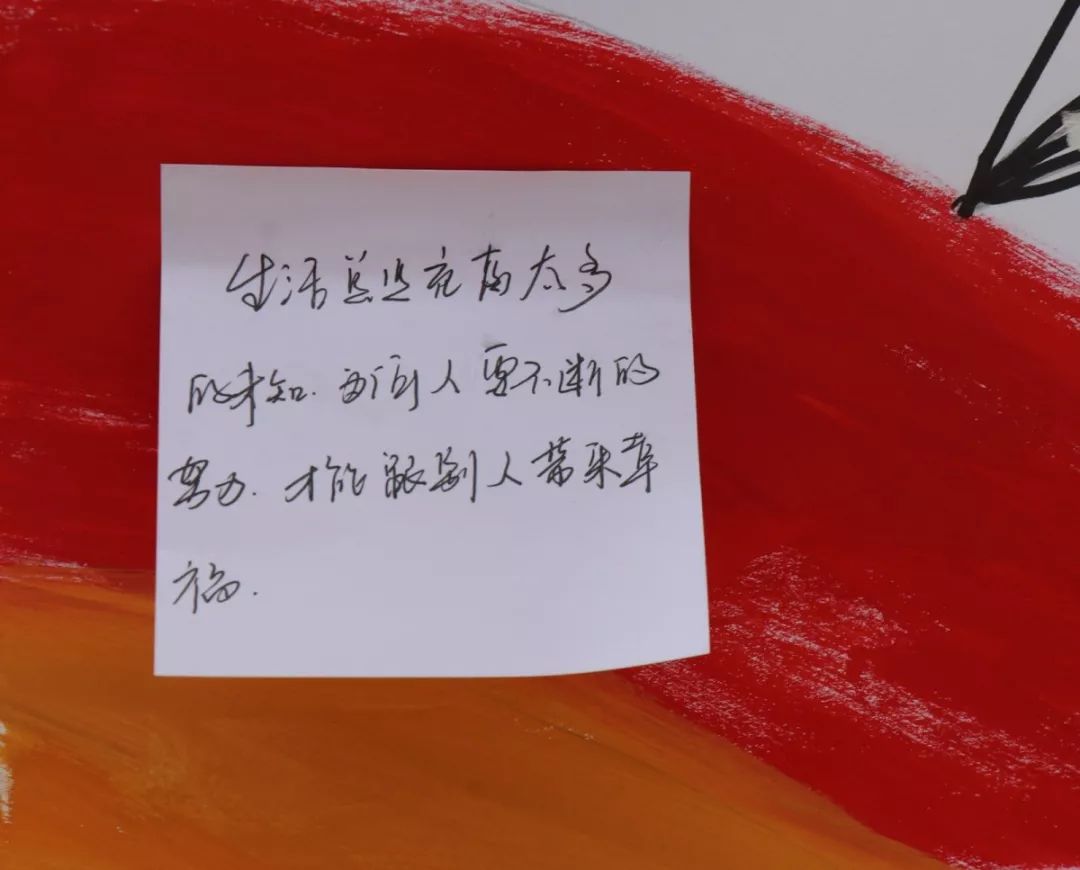 生活总是充满太多
的未知.而我们人要不断的
努力.才能跟别人带来幸
福.